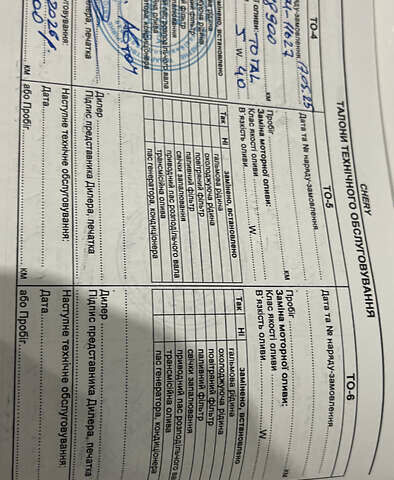 CHERY
ТАЛОНИ ТЕХНІЧНОГО ОБСЛУГОВУВАННЯ
ТО-4
17.05.25
TOTAL
5 W 40
замінено, встановлено
печатка
ТО-5
Дата та № наряду-замовлення
Пробіг км
Заміна моторної оливи:
Клас якості оливи
В'язкість оливи W
Так Ні замінено, встановлено
гальмова рідина
охолоджуюча рідина
повітряний фільтр
паливний фільтр
свічки запалювання
приводний пас розподільчого вала
трансмісійна олива
пас генератора, кондиціонера
Дилер
Підпис представника Дилера, печатка
Наступне технічне обслуговування:
Дата
або Пробіг км
ТО-6
Дата та № наряду-замовлення
Пробіг км
Заміна моторної оливи:
Клас якості оливи
В'язкість оливи W
Так Ні замінено, встановлено
гальмова рідина
охолоджуюча рідина
повітряний фільтр
паливний фільтр
свічки запалювання
приводний пас розподільчого вала
трансмісійна олива
пас генератора, кондиціонера
Дилер
Підпис представника Дилера, печатка
Наступне технічне обслуговування:
Дата
або Пробіг км